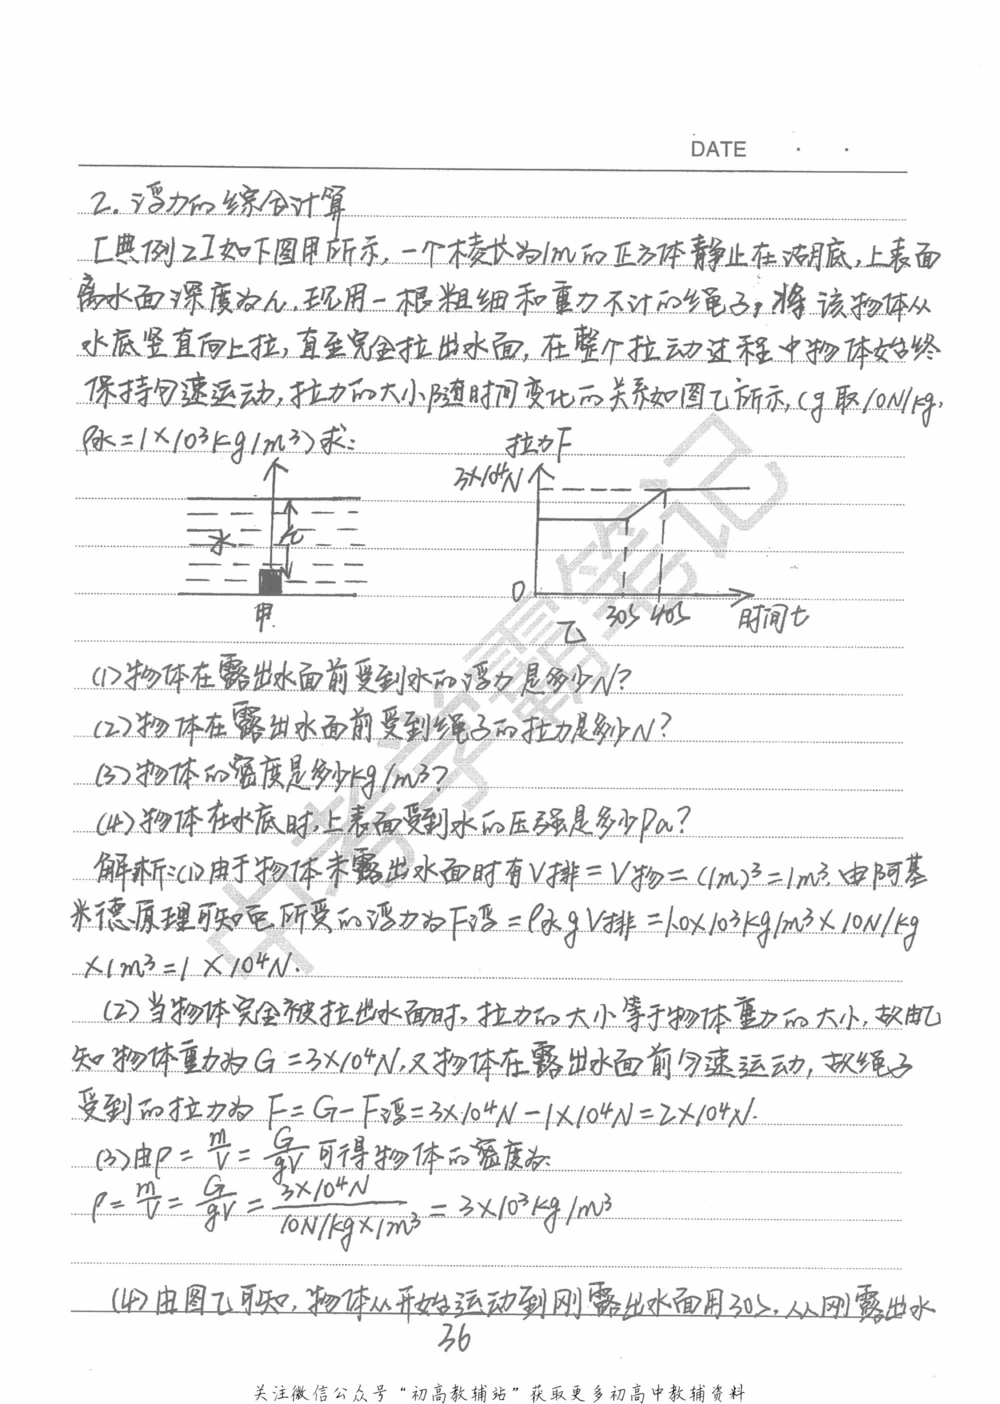 DATE
2.浮力的综合计算
[典例2]如下图甲所示,一个棱长为1m的正方体静止在湖底,上表面
离水面深度为h.现用一根粗细和重力不计的绳子,将该物体从
水底竖直向上拉,直至完全拉出水面,在整个拉动过程中物体始终
保持匀速运动,拉力的大小随时间变化的关系如图乙所示,(g取10N/kg,
ρ水=1×10³kg/m³)求:
拉力F
3×10⁴N
水
h
甲
0
30s 40s 时间t
乙
(1)物体在露出水面前受到水的浮力是多少N?
(2)物体在露出水面前受到绳子的拉力是多少N?
(3)物体的密度是多少kg/m³?
(4)物体在水底时,上表面受到水的压强是多少Pa?
解析:(1)由于物体未露出水面时有V排=V物=(1m)³=1m³.由阿基
米德原理可知它所受的浮力为F浮=ρ水gV排=1.0×10³kg/m³×10N/kg
×1m³=1×10⁴N.
(2)当物体完全被拉出水面时,拉力的大小等于物体重力的大小,故由乙
知物体重力为G=3×10⁴N,又物体在露出水面前匀速运动,故绳子
受到的拉力为F=G-F浮=3×10⁴N-1×10⁴N=2×10⁴N.
(3)由ρ=m/V=G/gV可得物体的密度为:
ρ=m/V=G/gV=3×10⁴N/10N/kg×1m³=3×10³kg/m³
(4)由图乙可知,物体从开始运动到刚露出水面用30s,从刚露出水
36
关注微信公众号“初高教辅站”获取更多初高中教辅资料
中考学霸笔记